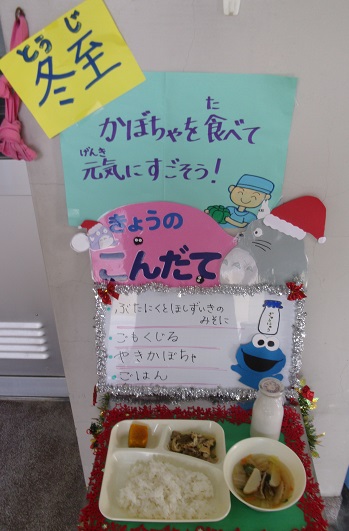 とうじ
冬至
かぼちゃを食べて
た
元気にすごそう!
げんき
きょうの
こんだて
・ぶたにくとほしずいきの
みそに
・ごもくじる
・やきかぼちゃ
・ごはん